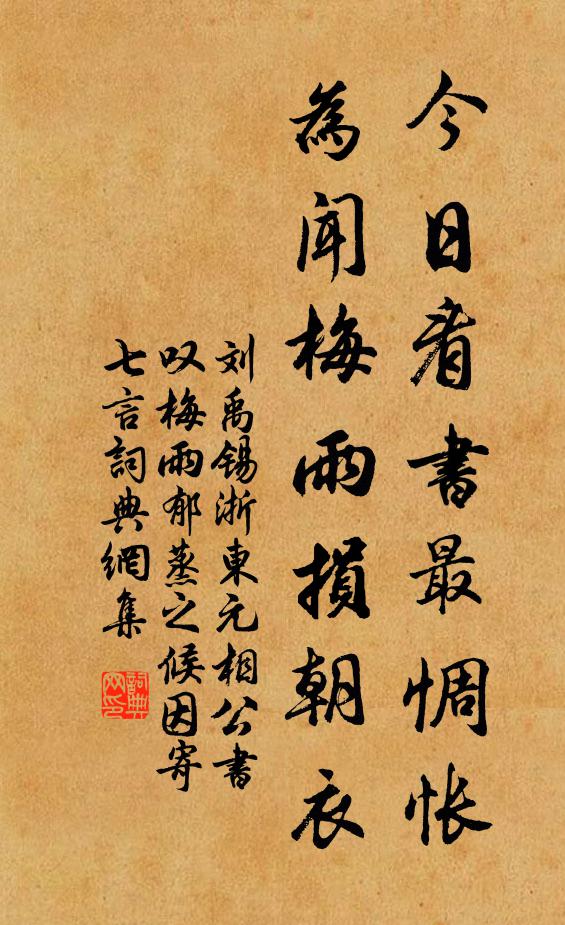 今日看書最惆怅
為聞梅雨損朝衣
刘禹锡浙東元相公書
叹梅雨郁蒸之候因寄
七言詞典網集
詞典網印